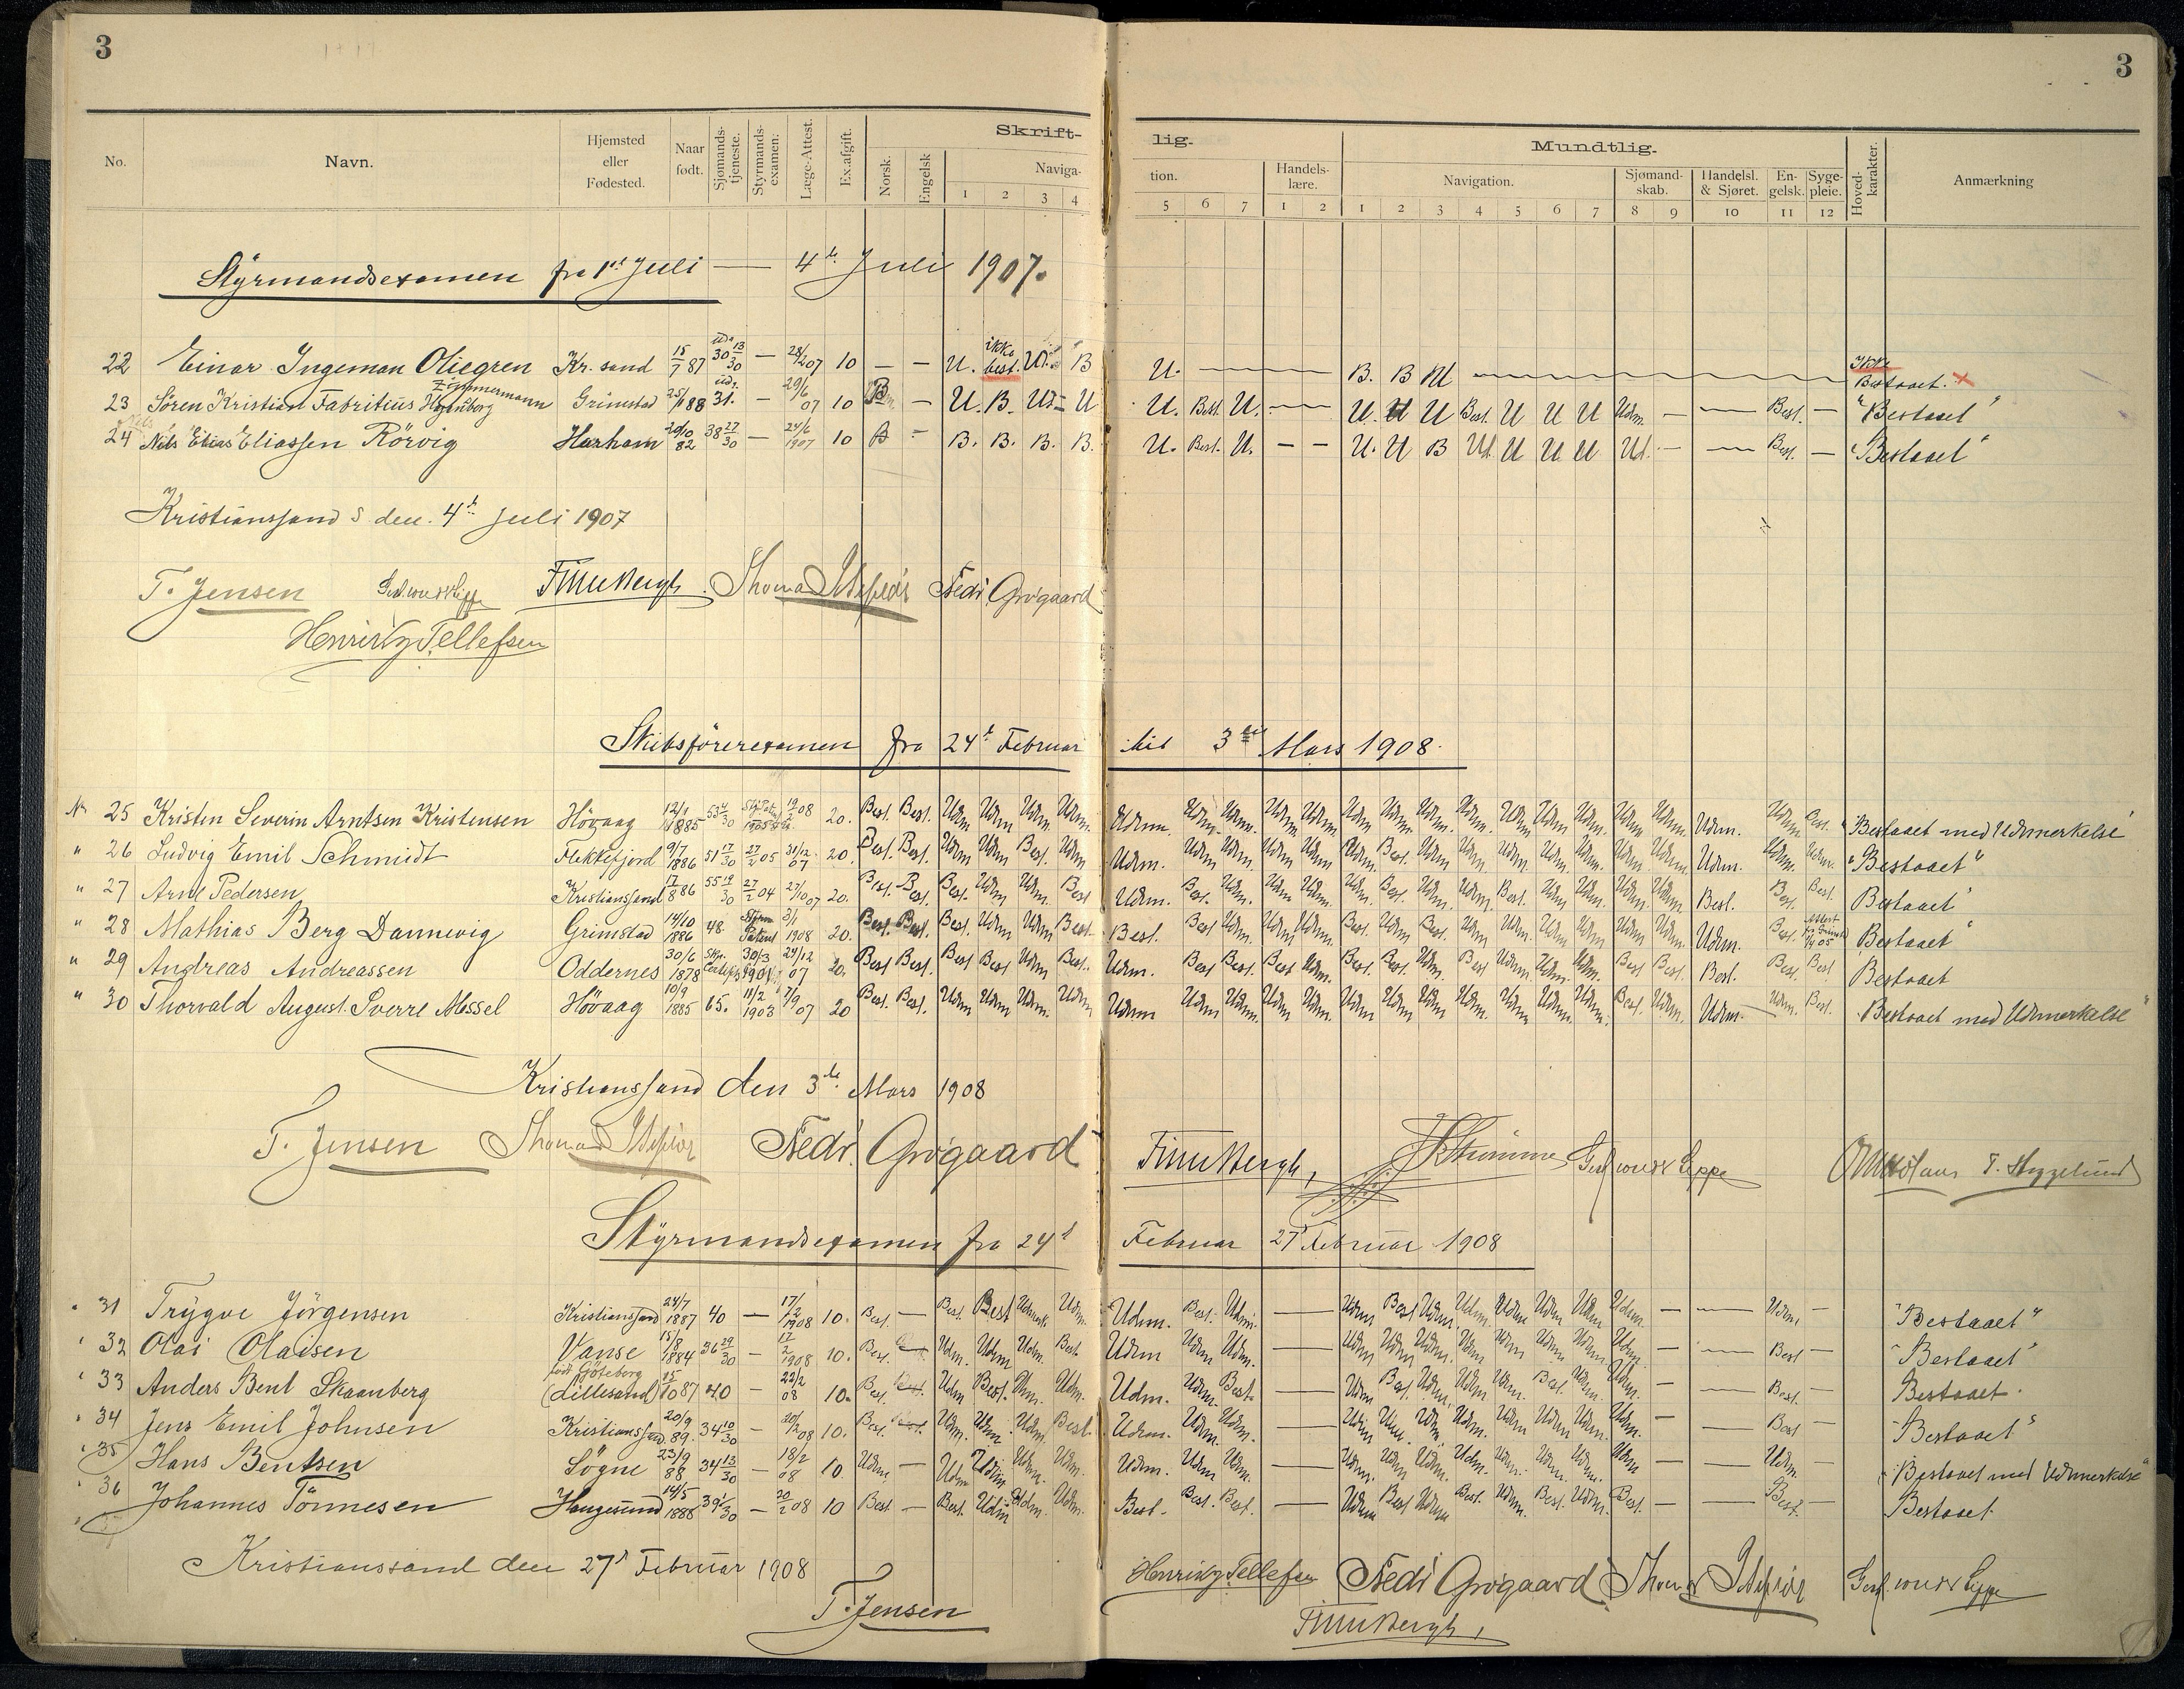 3
3
No. Navn. Hjemsted eller Fødested. Naar født. Sjømands-tjeneste. Styrmands-examen. Læge-Attest. Ex.afgift. Norsk. Engelsk Skrift- Naviga- 1 2 3 4
lig. tion. 5 6 7 Handels-lære. 1 2 Mundtlig. Navigation. 1 2 3 4 5 6 7 Sjømand-skab. 8 9 Handelsl. & Sjøret. 10 En-gelsk. 11 Syge-pleie. 12 Hoved-karakter. Anmærkning
Styrmandsexamen fra 1st Juli — 4de Juli 1907.
22 Einar Ingeman Oliegren Kr. sand 15/7 87 30 13/30 — 28/2 07 10 — — U. ikke best. U. B U. — B. B U — Ikke Bestaaet. ×
23 Søren Kristian Fabritius Zimmermann Grimstad 88 31. — 29/6 07 10 B — U. B. U U U. Best. U. — — U. U U Best. U U U Udm. — — Best. — "Bestaaet"
24 Nils Elias Eliassen Rörvig Harham 20/10 82 38 27/30 — 24/6 1907 10 B — B. B. B. B. U. Best. U. — — U. U B Ud. U U U Ud. — — Best. — "Bestaaet"
Kristianssand S den. 4de Juli 1907
T. Jensen Finn Bergh. Fredr. Grøgaard
Henrik Tellefsen
Skibsförerexamen fra 24de Februar til 3die Mars 1908.
No 25 Kristen Severin Arntsen Kristensen Hövaag 12/1 1885 53 4/30 19/2 08 20. Best. Best. Udm Udm Udm. Udm. Udm. Udm. Udm. Udm Udm Udm Udm Udm. Udm. Udm Udm Udm. Udm Udm. Udm. Udm Best. "Bestaaet med Udmerkelse"
" 26 Ludvig Emil Schmidt Flekkefjord 9/7 1886 51 17/30 27/2 05 31/12 07 20. Best. Best. Udm Udm Best. Udm Udm. Udm Udm. Udm Udm. Udm. Best. Udm. Udm Udm. Udm Udm. Udm. Udm. Udm. Udm. Udm. "Bestaaet"
" 27 Arne Pedersen Kristianssand 17/8 86 55 19/30 27/2 04 27/10 07 20. Best. Best. Best. Udm Udm. Best Udm. Best. Udm. Udm. Udm. Udm. Best. Udm. Udm. Best. Udm Udm. Udm. Udm. Best. Best. Best. Bestaaet"
" 28 Mathias Berg Dannevig Grimstad 14/10 1886 48. Styrm Patent 3/1 1908 20. Best. Best. Best. Udm Udm. Best. Best. Best Udm. Udm Udm. Best. Udm Best. Udm Udm. Udm Udm. Udm. Udm. Udm. Best. Bestaaet"
" 29 Andreas Andreassen Oddernes 30/6 1878 30/3 1901 24/12 07 20. Best Best. Best Best Udm Best. Udm. Best Best. Best Udm. Best. Best. Udm. Best Udm Udm. Udm. Best Best. Best. Best. Best Bestaaet
" 30 Thorvald August Sverre Messel Hövaag 10/9 1885 65. 11/2 1903 7/9 07 20 Best. Best. Udm Udm Udm. Udm Udm Udm Udm. Udm Udm Udm Udm Udm Udm. Udm Udm. Udm. Best. Udm. Udm. Udm. Best. "Bestaaet med Udmerkelse"
Kristianssand den 3de Mars 1908
T. Jensen Fredr. Grøgaard Finn Bergh,
Styrmandsexamen fra 24d Februar 27d Februar 1908
" 31 Trygve Jörgensen Kristianssand 24/7 1887 40 — 17/2 1908 10. Best. — Best. Best Udmerk. Udm. Udm. Best. Udm. — Udm Best Udm. Udm. Udm Udm Udm Udm. — — Udm — "Bestaaet"
" 32 Olai Olaisen Vanse 15/8 1884 36 29/30 — 17/2 1908 10. Best. — Udm. Udm Udm. Best. Udm Udm Udm. — Udm Udm Udm. Udm Udm Udm Udm. Udm. — — Best — "Bestaaet"
" 33 Anders Bent Skaanberg född Göteborg (Lillesand) 15/10 87 40 — 22/2 08 10. Best. Udm Best. Udm. Udm. Udm. Udm. Best. — Udm Best Udm. Udm Udm. Best. Udm. Udm. — — Best. — Bestaaet.
" 34 Jens Emil Johnsen Kristianssand 20/9 89. 34 10/30 — 20/2 08 10. Best. Udm. Udm. Udm. Best. Udm. Udm. Udm. — Udm Udm. Udm. Udm. Udm Udm Udm. Udm. — — Best — "Bestaaet"
" 35 Hans Bentsen Søgne 23/9 88 34 13/30 — 18/2 08 10. Udm. — Udm Udm Udm. Udm. Udm. Udm. Udm. — Udm. Udm Udm. Udm. Udm. Udm. Udm. Udm — — Udm. — "Bestaaet med Udmerkelse"
" 36 Johannes Tönnesen Haugesund 14/5 1888 39 1/30 — 20/2 08 10 Best. — Best. Udm Udm. Udm. Best. Best. Best. — Udm Best Udm Best. Udm. Best. Udm. Best. — — Best. — Bestaaet.
Kristianssand den 27d Februar 1908
Henrik Tellefsen Fredr. Grøgaard
T. Jensen Finn Bergh,